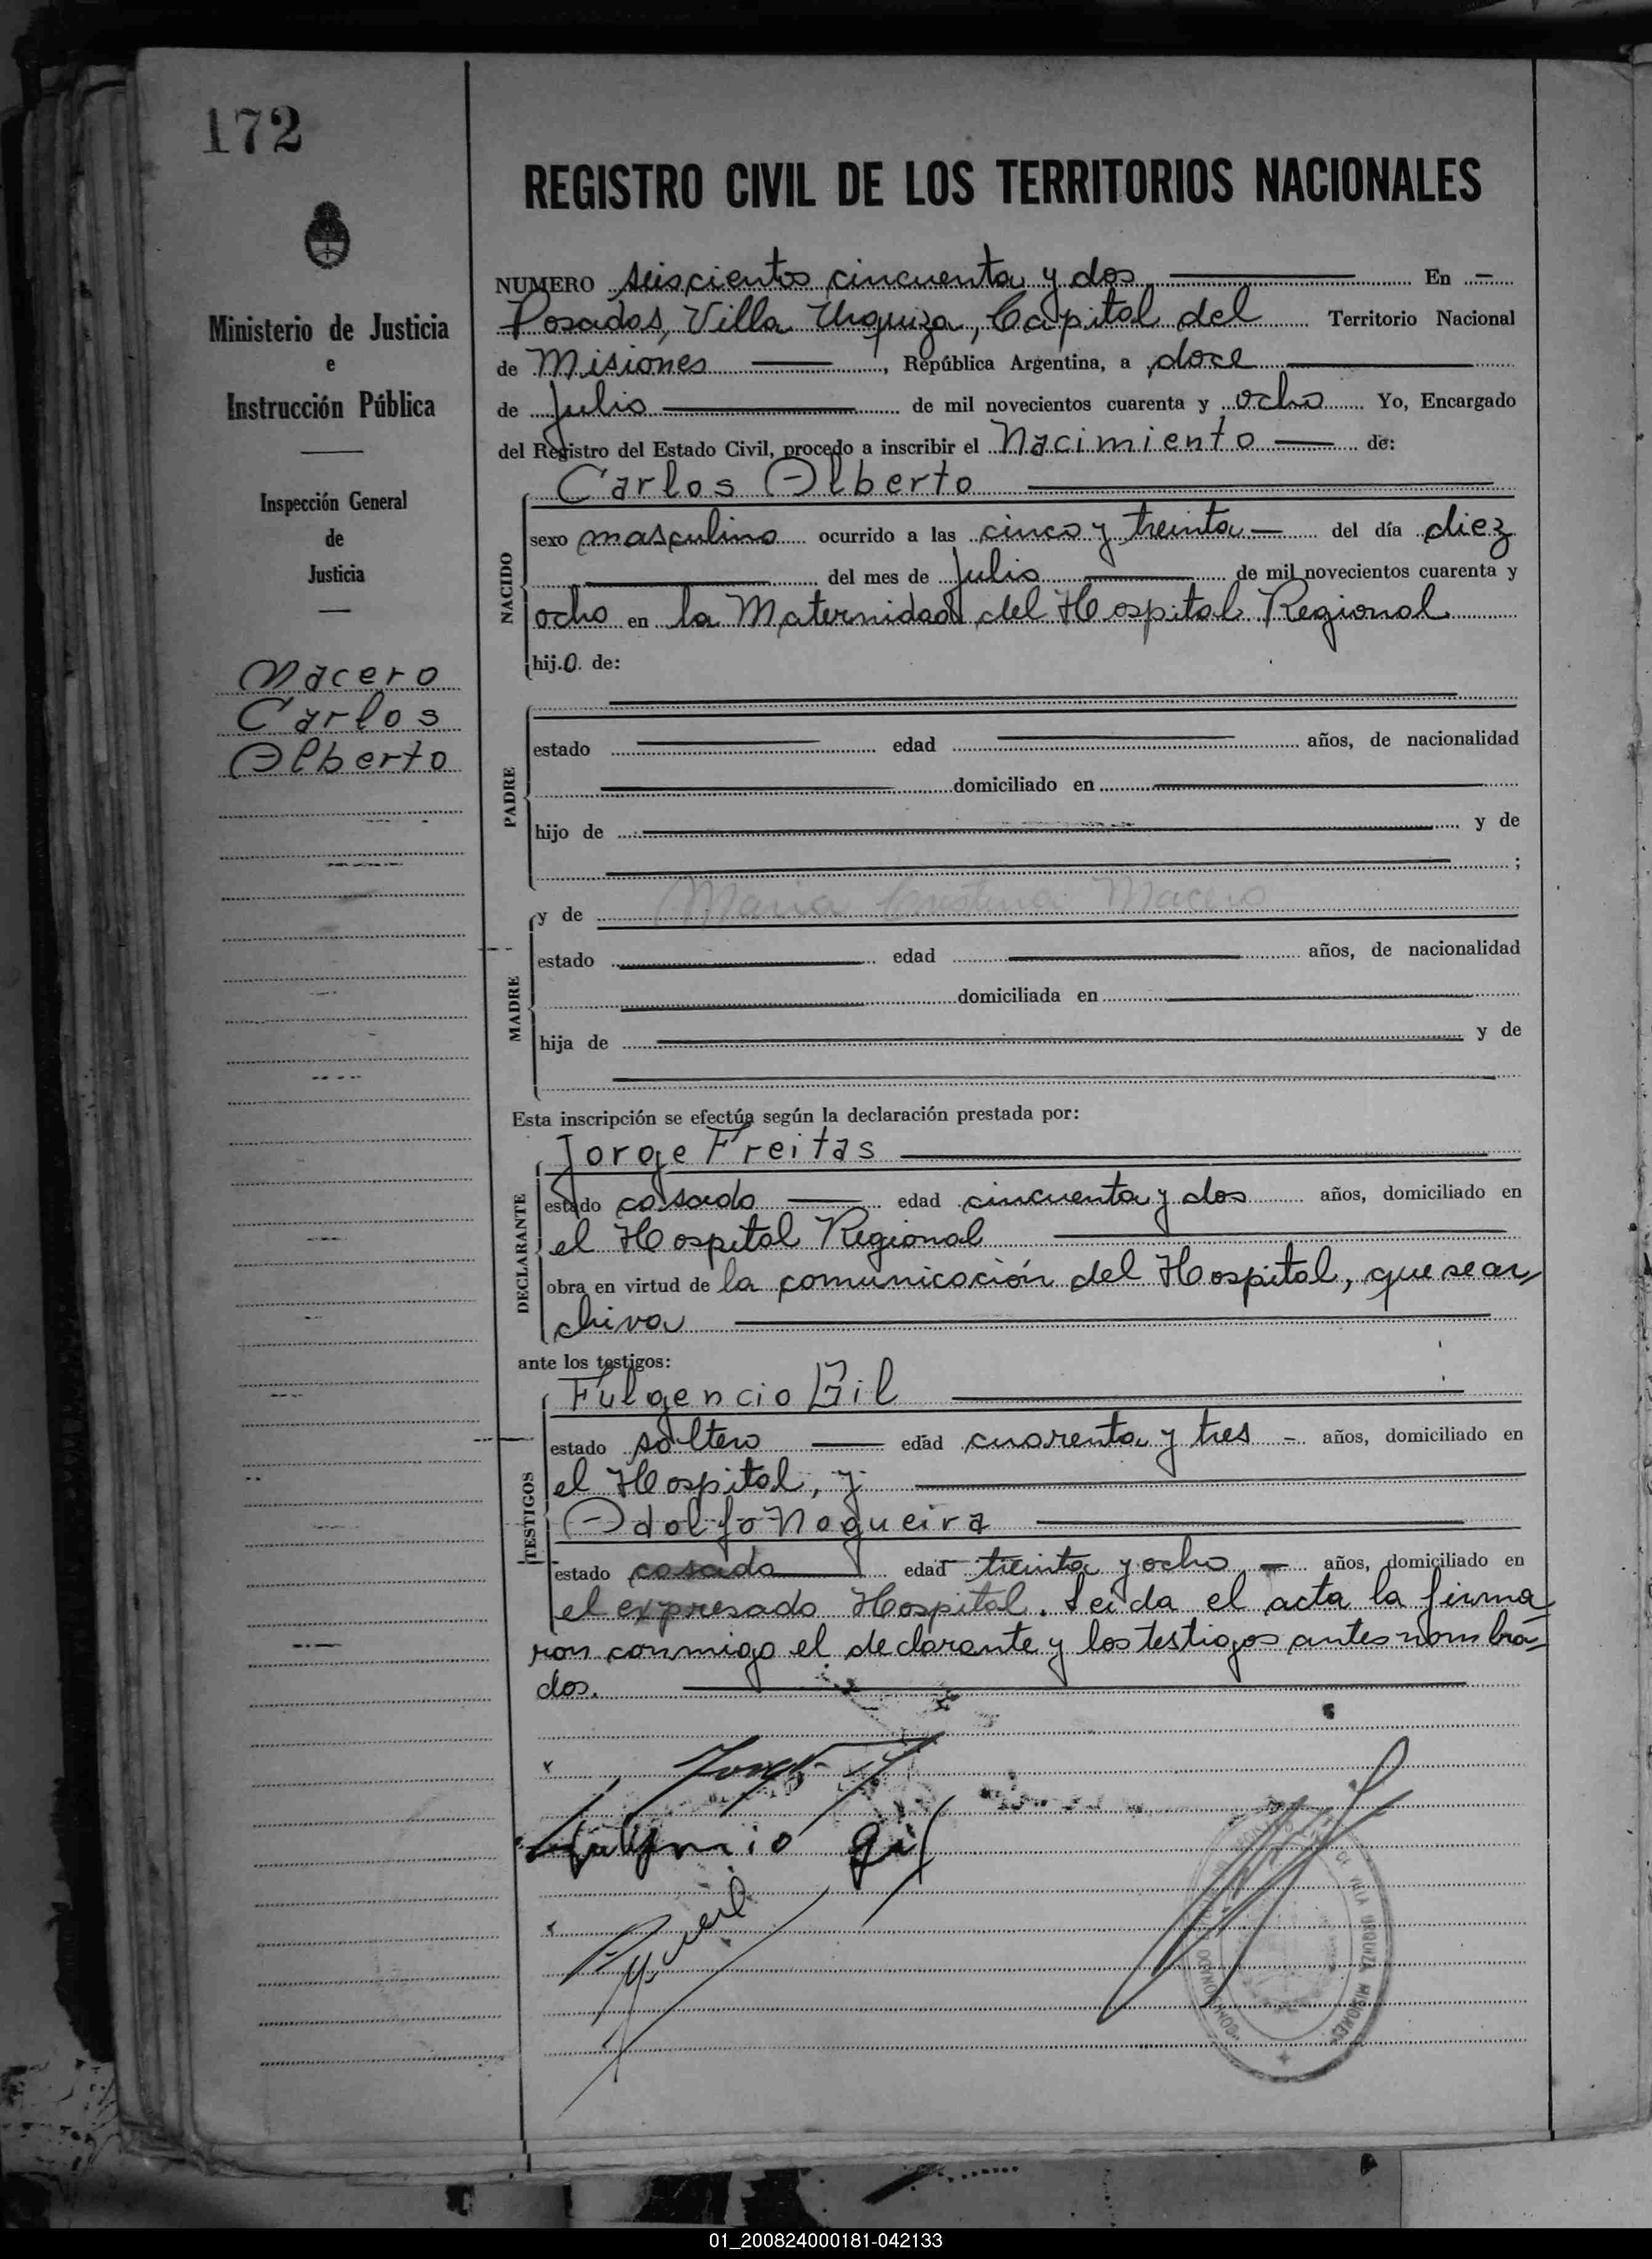 172
REGISTRO CIVIL DE LOS TERRITORIOS NACIONALES
Ministerio de Justicia
e
Instrucción Pública
Inspección General
de
Justicia
Macero
Carlos
Alberto
NUMERO seiscientos cincuenta y dos En
Posadas, Villa Urquiza, Capital del Territorio Nacional
de Misiones, República Argentina, a doce
de Julio de mil novecientos cuarenta y ocho Yo, Encargado
del Registro del Estado Civil, procedo a inscribir el Nacimiento de:
Carlos Alberto
NACIDO
sexo masculino ocurrido a las cinco y treinta del día diez
del mes de Julio de mil novecientos cuarenta y
ocho en la Maternidad del Hospital Regional
hij.o. de:
PADRE
estado edad años, de nacionalidad
domiciliado en
hijo de y de
;
MADRE
y de Maria Cristina Macero
estado edad años, de nacionalidad
domiciliada en
hija de y de
Esta inscripción se efectúa según la declaración prestada por:
Jorge Freitas
DECLARANTE
estado casado edad cincuenta y dos años, domiciliado en
el Hospital Regional
obra en virtud de la comunicación del Hospital, que se ar
chiva
ante los testigos:
Fulgencio Gil
TESTIGOS
estado soltero edad cuarenta y tres - años, domiciliado en
el Hospital, y
Adolfo Nogueira
estado casado edad treinta y ocho años, domiciliado en
el expresado Hospital. Leída el acta la firma
ron conmigo el declarante y los testigos antes nombra
dos.
Gil
VILLA URQUIZA MISIONES
01_200824000181-042133